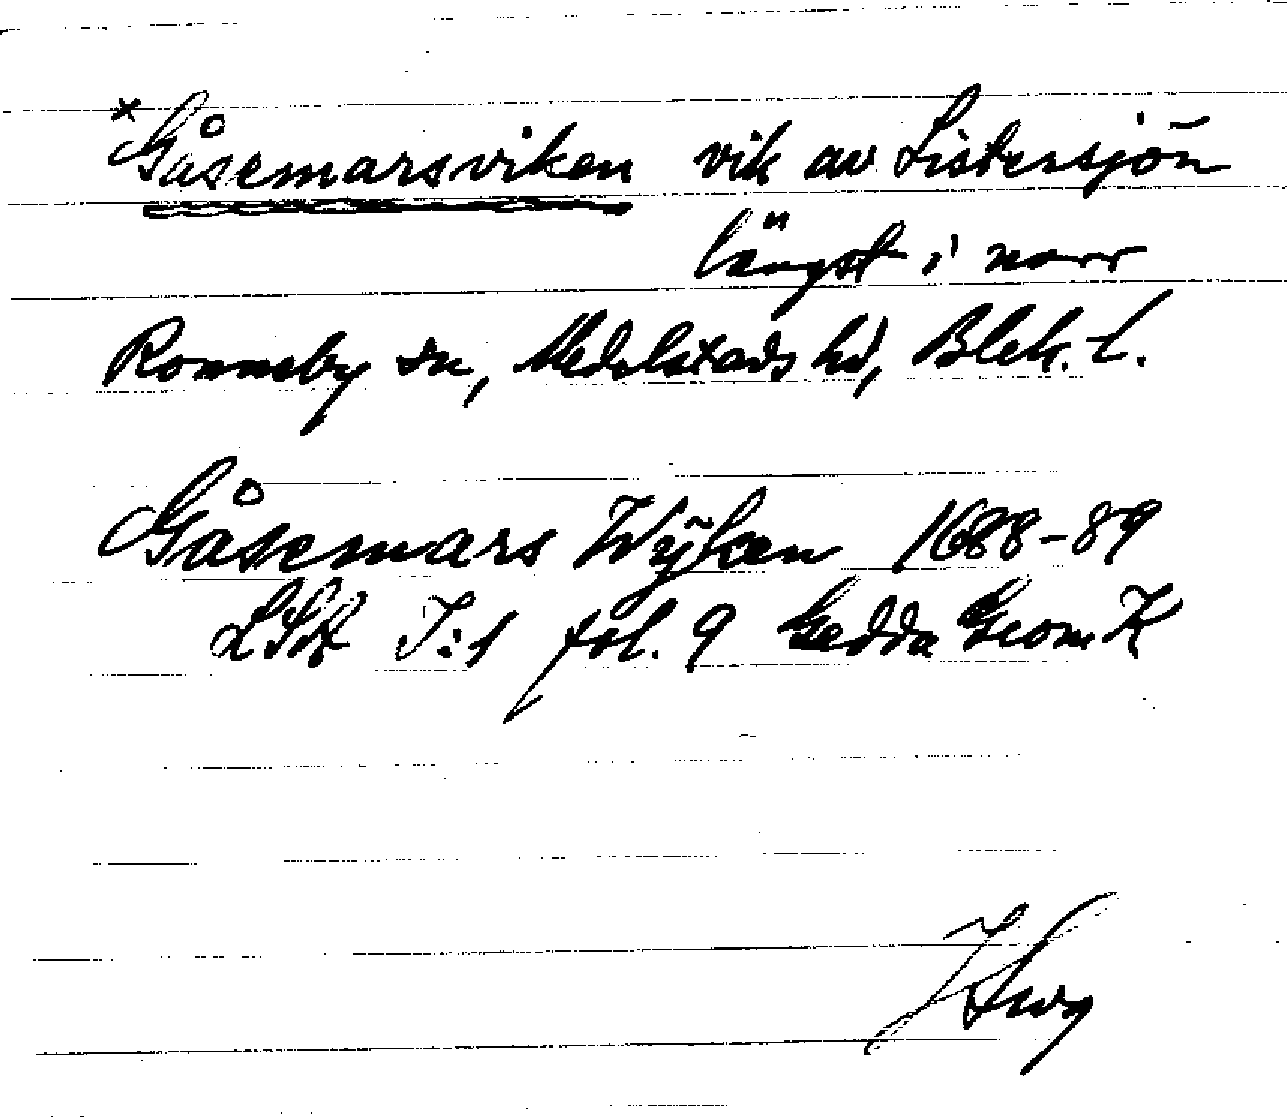 * Gåsemarsviken vik av Listersjön
längst i norr
Ronneby sn, Medelstads hd, Blek. l.
Gåsemars Wÿken 1688-89
LSA I:1 fol. 9 Gedda Geom K